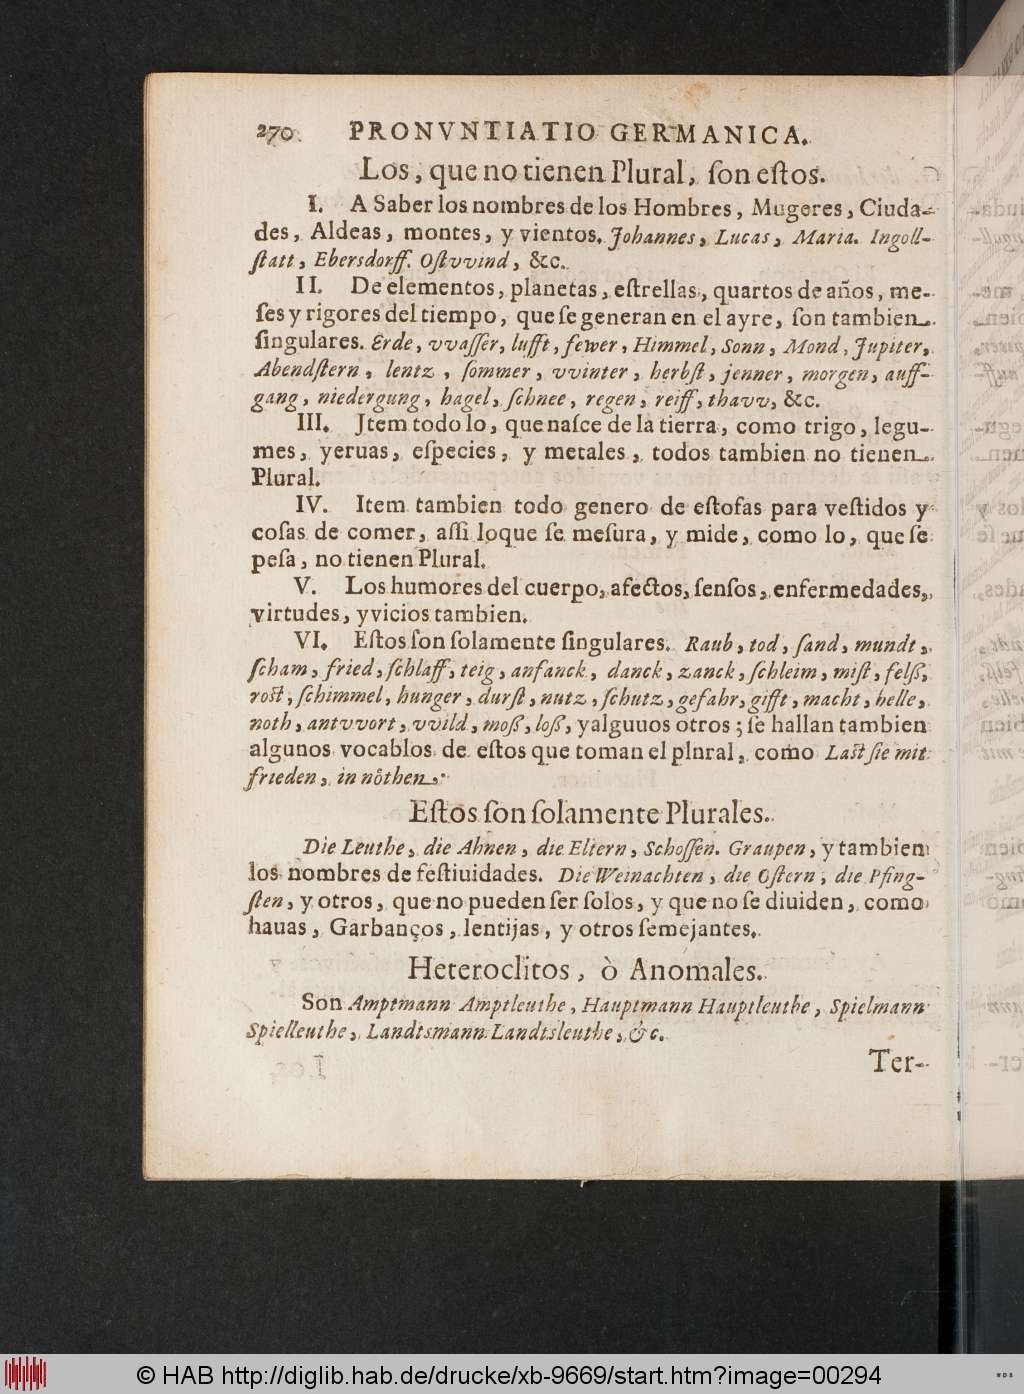 270. PRONVNTIATIO GERMANICA.
Los, que no tienen Plural, ſon eſtos.
I. A Saber los nombres de los Hombres, Mugeres, Ciuda-
des, Aldeas, montes, y vientos. Johannes, Lucas, Maria. Ingoll-
ſtatt, Ebersdorff. Oſtvvind, &c.
II. De elementos, planetas, eſtrellas, quartos de años, me-
ſes y rigores del tiempo, que ſe generan en el ayre, ſon tambien
ſingulares. Erde, vvaſſer, lufft, fewer, Himmel, Sonn, Mond, Jupiter,
Abendſtern, lentz, ſommer, vvinter, herbſt, jenner, morgen, auff-
gang, niedergung, hagel, ſchnee, regen, reiff, thavv, &c.
III. Jtem todo lo, que naſce de la tierra, como trigo, legu-
mes, yeruas, eſpecies, y metales, todos tambien no tienen
Plural.
IV. Item tambien todo genero de eſtofas para veſtidos y
coſas de comer, aſſi loque ſe meſura, y mide, como lo, que ſe
peſa, no tienen Plural.
V. Los humores del cuerpo, afectos, ſenſos, enfermedades,
virtudes, y vicios tambien.
VI. Eſtos ſon ſolamente ſingulares. Raub, tod, ſand, mundt,
ſcham, fried, ſchlaff, teig, anfanck, danck, zanck, ſchleim, miſt, felß,
roſt, ſchimmel, hunger, durſt, nutz, ſchutz, gefahr, gifft, macht, helle,
noth, antvvort, vvild, moß, loß, yalguuos otros; ſe hallan tambien
algunos vocablos de eſtos que toman el plnral, como Laſt ſie mit
frieden, in nöthen.
Eſtos ſon ſolamente Plurales.
Die Leuthe, die Ahnen, die Eltern, Schoſſen. Graupen, y tambien
los nombres de feſtiuidades. Die Weinachten, die Oſtern, die Pfing-
ſten, y otros, que no pueden ſer ſolos, y que no ſe diuiden, como
hauas, Garbanços, lentijas, y otros ſemejantes.
Heteroclitos, ò Anomales.
Son Amptmann Amptleuthe, Hauptmann Hauptleuthe, Spielmann
Spielleuthe, Landtsmann Landtsleuthe, &c.
Ter-
© HAB http://diglib.hab.de/drucke/xb-9669/start.htm?image=00294